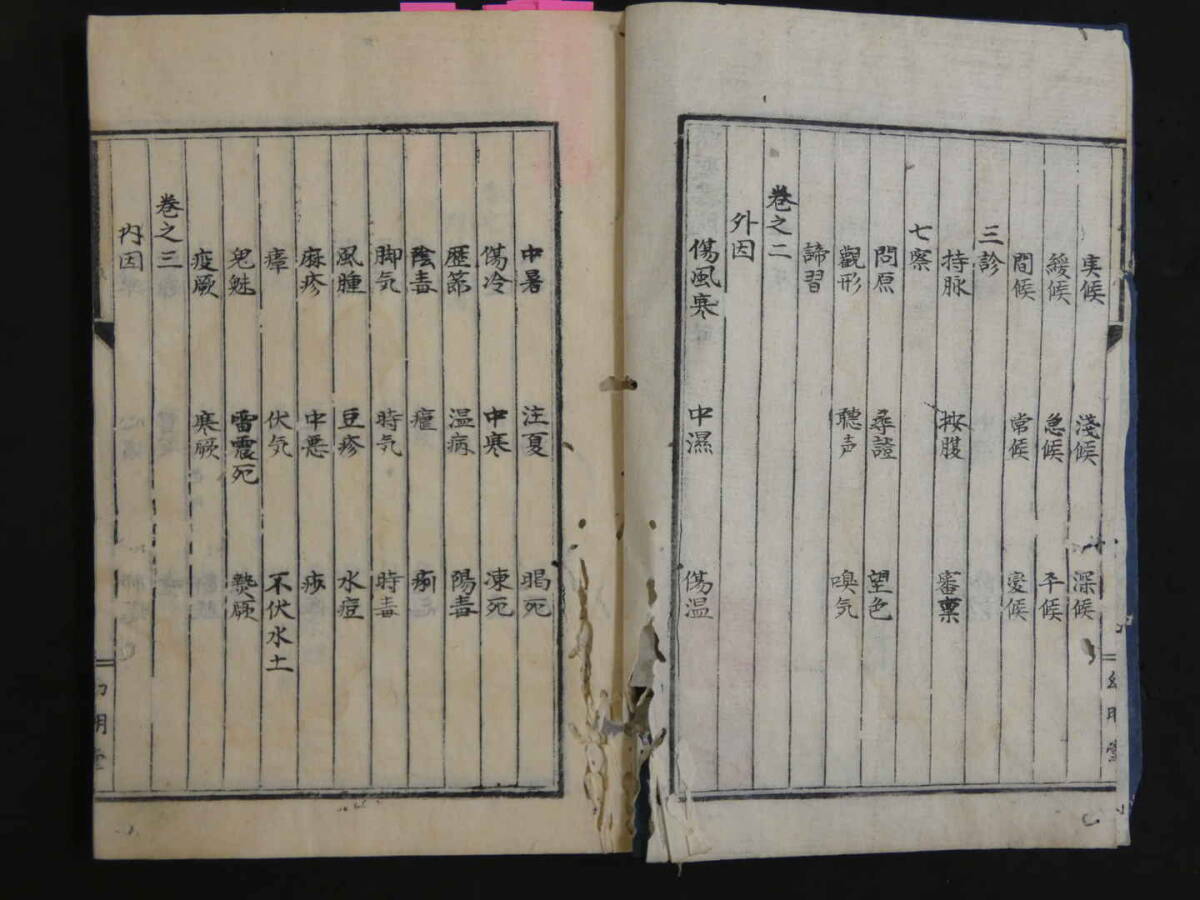 実候 淺候 深候
緩候 急候 平候
間候 常候 変候
三診
持脉 按腹 審稟
七察
問原 尋證 望色
觀形 聽声 嗅気
諦習
巻之二
外因
傷風寒 中濕 傷温
中暑 注夏 暍死
傷冷 中寒 凍死
歷節 温病 陽毒
陰毒 瘧 痢
脚気 時気 時毒
風腫 豆疹 水痘
麻疹 中悪 痧
瘴 伏気 不伏水土
鬼魅 雷震死
疫厥 寒厥 熱厥
巻之三
内因
幻明堂